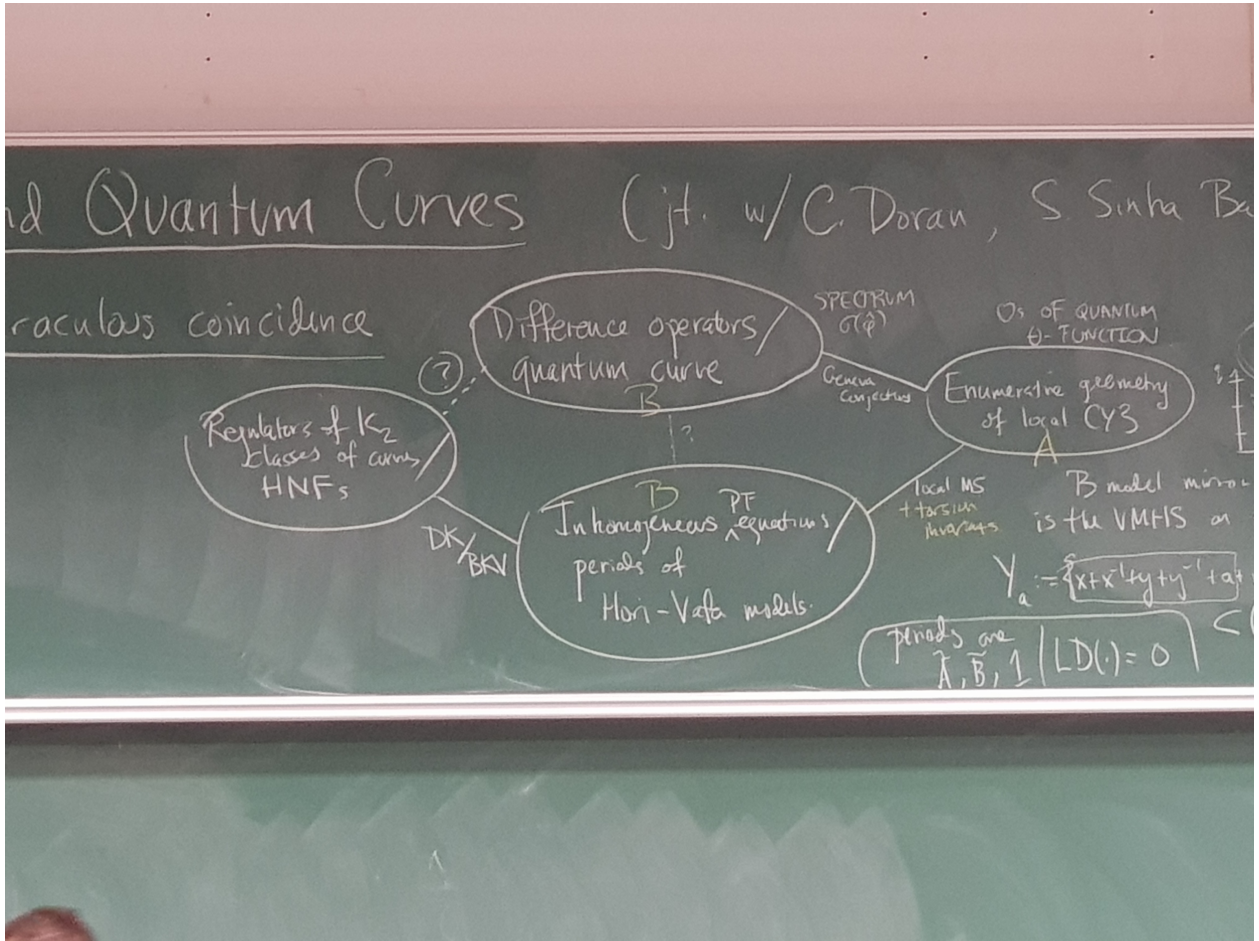 nd Quantum Curves (jt. w/ C. Doran, S. Sinha Ba
raculous coincidence
Difference operators/
quantum curve
B
SPECTRUM
σ(φ̂)
0s OF QUANTUM
θ-FUNCTION
?
Geneva
Conjecture
Enumerative geometry
of local CY3
A
Regulators of K₂
classes of curves/
HNFs
?
B PF
Inhomogeneous ^equations/
periods of
Hori-Vafa models.
DK/
BKV
local MS
+ torsion
invariants
B model mirror
is the VMHS on
Yₐ := {x+x⁻¹+y+y⁻¹+a+
periods are
Ã, B̃, 1 / LD(·) = 0